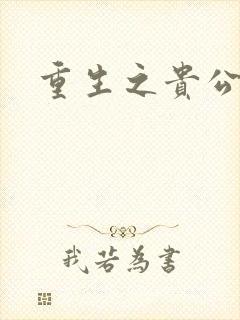 重生之貴公
我若為書